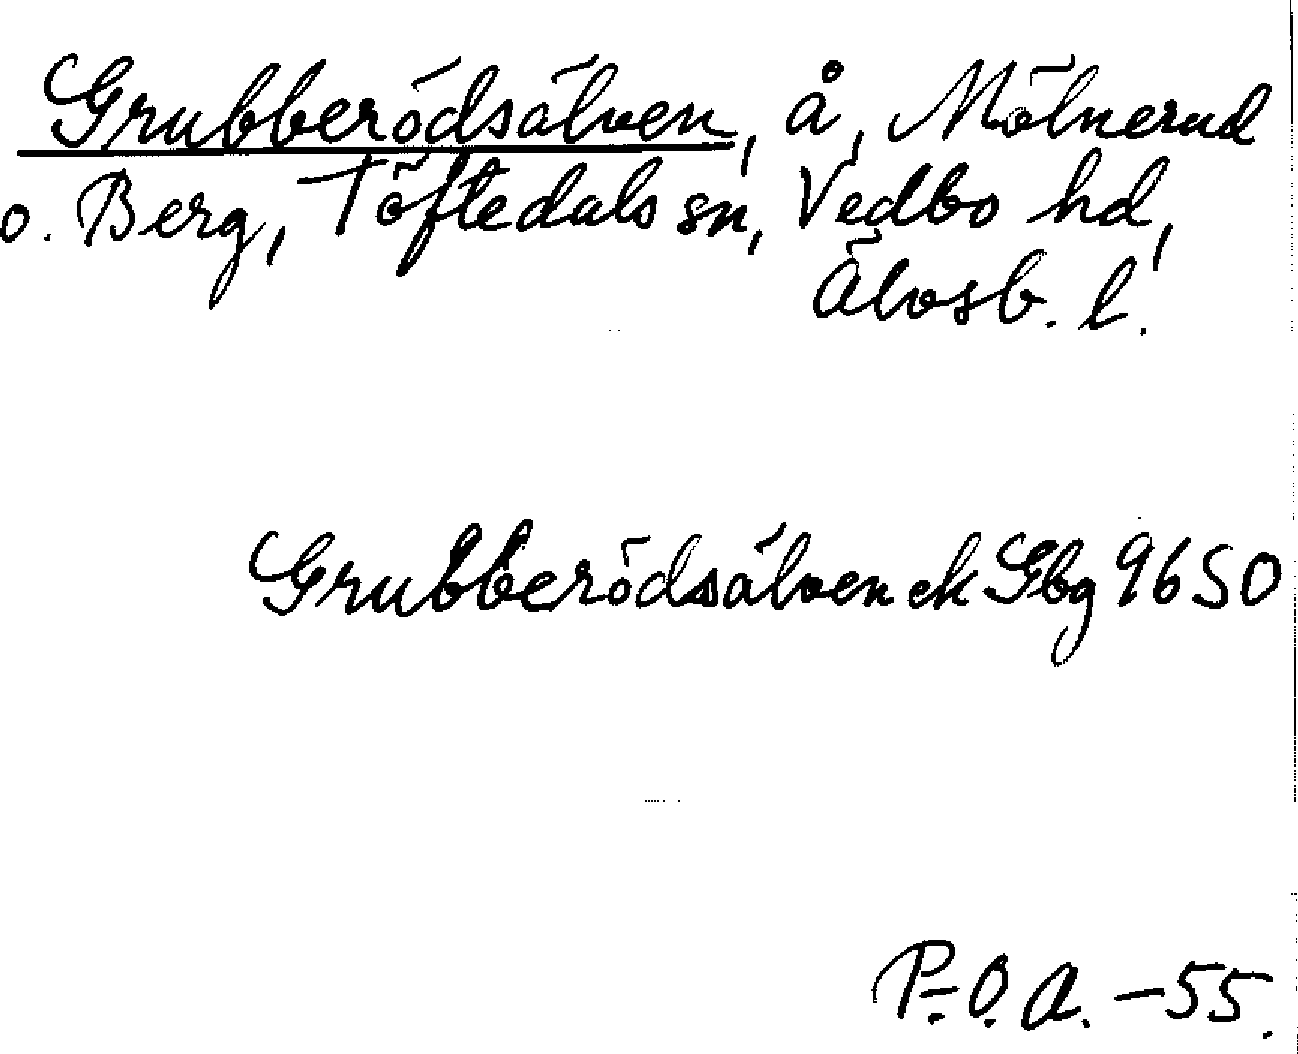 Grubberödsälven, å, Mölnerud
o. Berg, Töftedals sn, Vedbo hd,
Älvsb. l.
Grubberödsälven ek Gbg 9650
P.-O. A. -55.